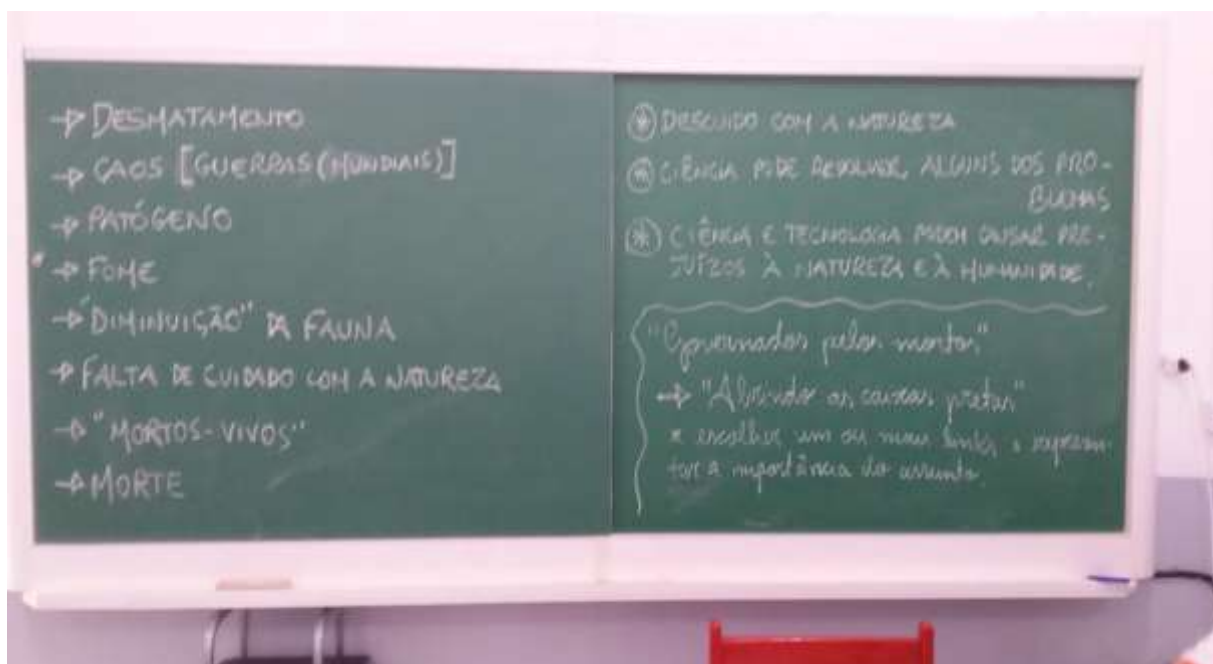 → DESMATAMENTO
→ CAOS [GUERRAS (MUNDIAIS)]
→ PATÓGENO
→ FOME
→ "DIMINUIÇÃO" DA FAUNA
→ FALTA DE CUIDADO COM A NATUREZA
→ "MORTOS-VIVOS"
→ MORTE
* DESCUIDO COM A NATUREZA
* CIÊNCIA PODE RESOLVER ALGUNS DOS PRO-
BLEMAS
* CIÊNCIA E TECNOLOGIA PODEM CAUSAR PRE-
JUÍZOS À NATUREZA E À HUMANIDADE.
"Governados pelos mortos"
→ "Abrindo as caixas pretas"
* escolher um ou mais links e represen-
tar a importância do assunto.